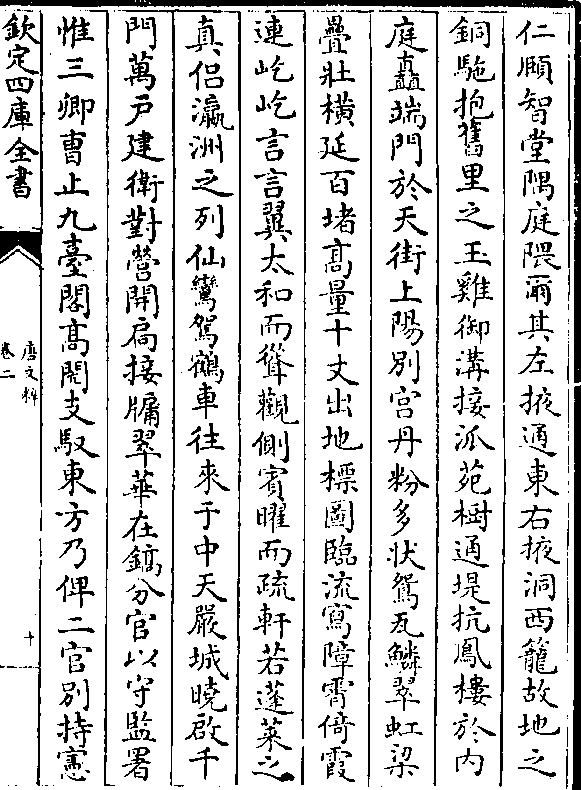 仁頋智堂隅庭隈爾其左掖通東右掖洞西籠故地之
銅駞抱舊里之王雞御溝接派苑樹通堤抗鳳樓於內
庭矗端門於天街上陽別宮丹粉多狀鴛瓦鱗翠虹梁
疊壯橫延百堵髙量十丈出地標圖臨流寫障霄倚霞
連屹屹言言翼太和而聳觀側賓曜而疏軒若蓬萊之
真侣瀛洲之列仙鸞駕鶴車往來于中天嚴城曉啟千
門萬戶建衛對營開扃接牗翠華在鎬分官以守監署
惟三卿曹止九臺閣髙閑支馭東方乃俾二官別持憲
欽定四庫全書
唐文粹
卷二
十